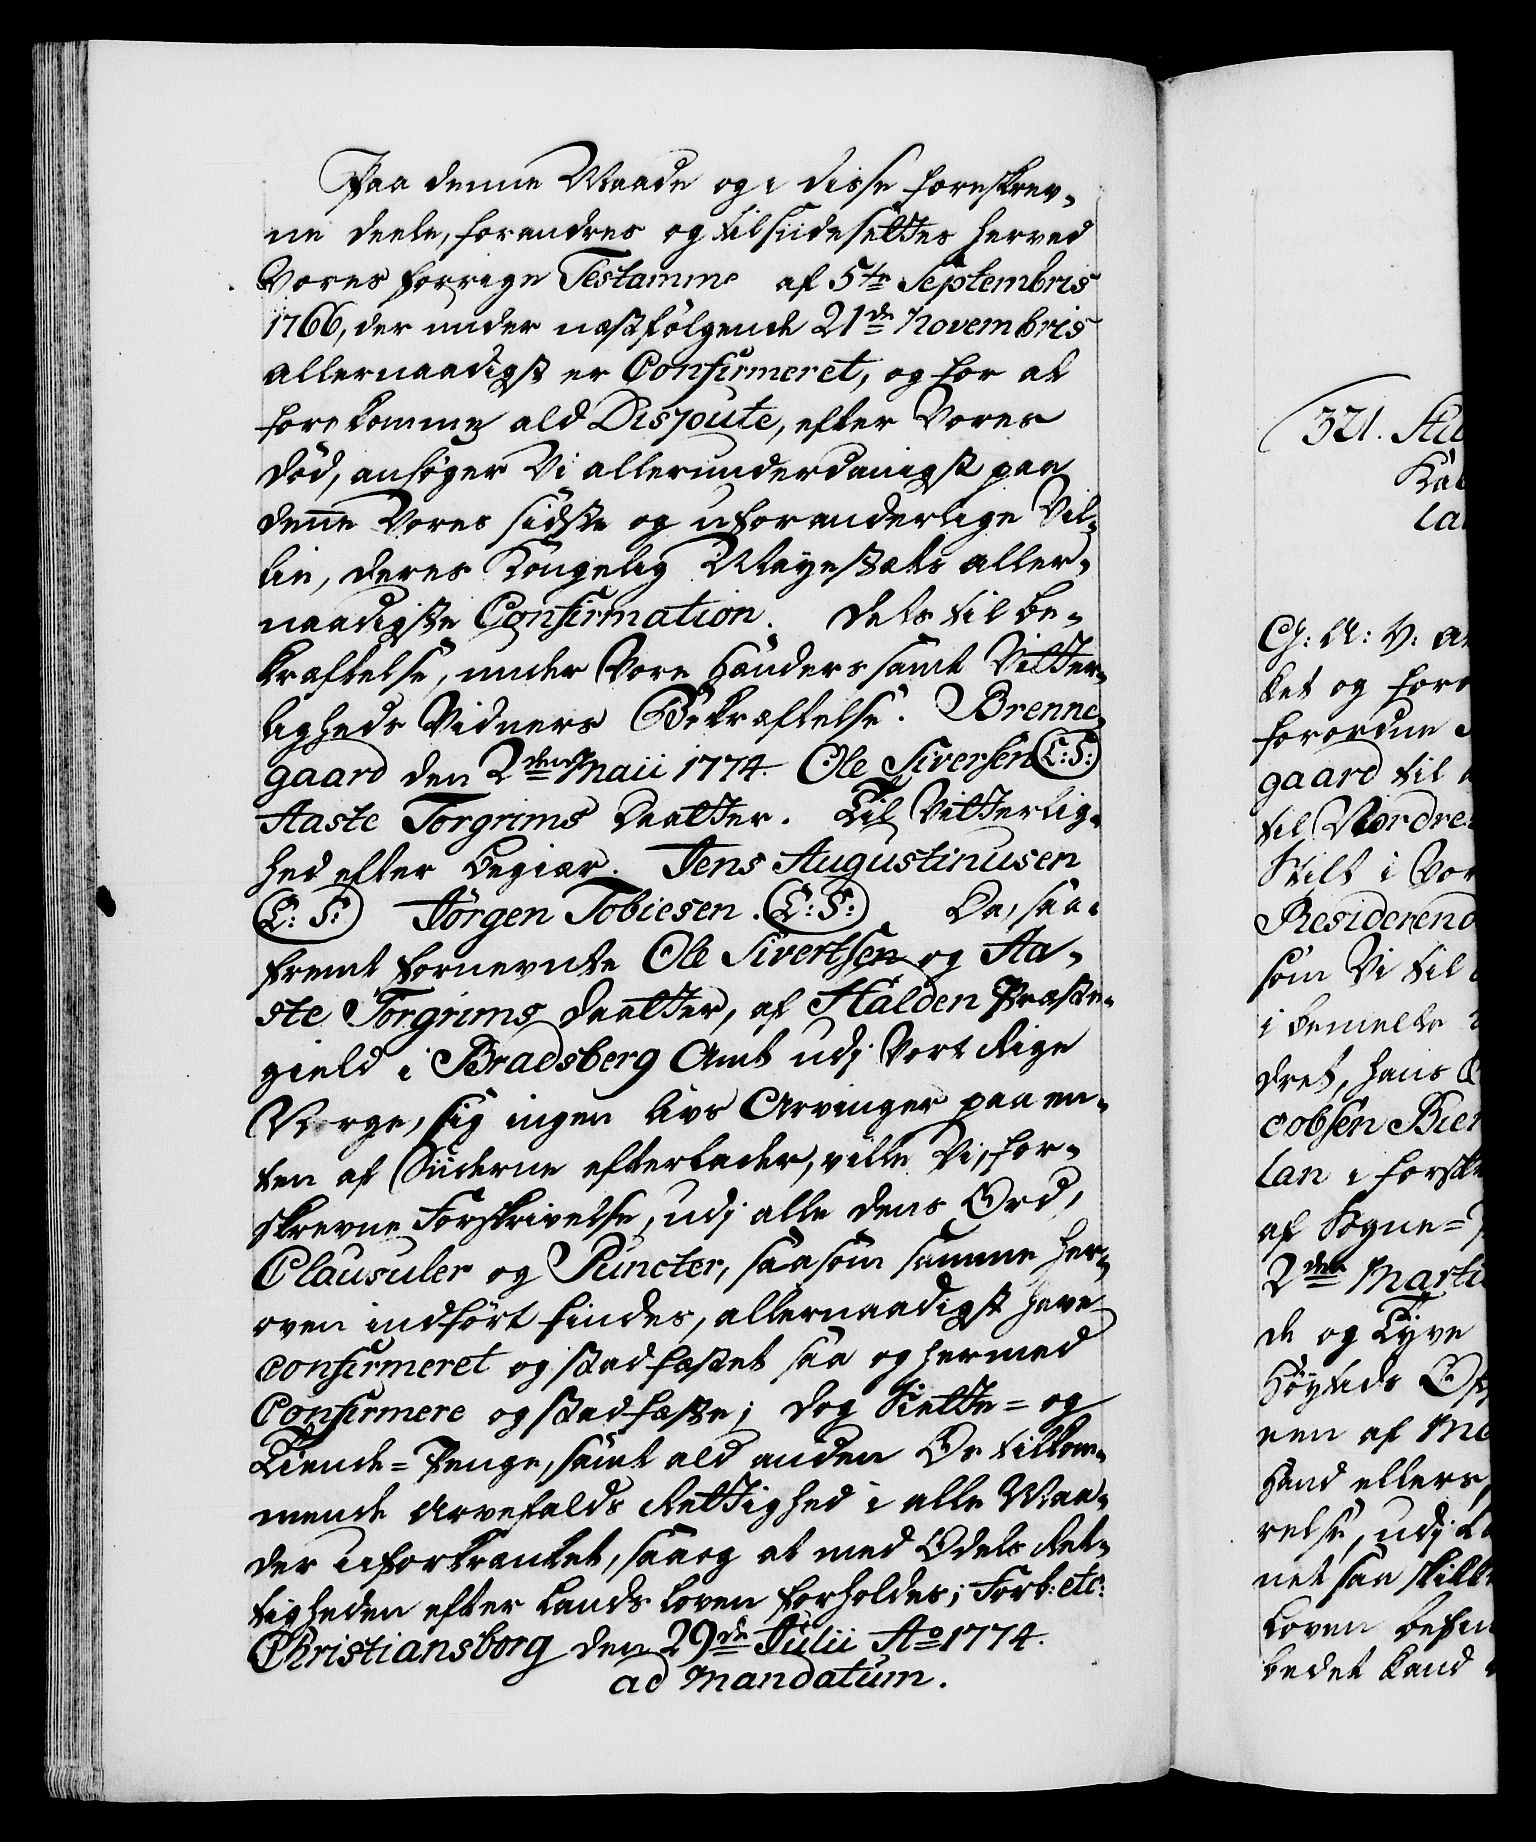 Paa denne Maade og i disse foreskrev-
ne deele, forandres og tilsiidesettes herved
Vores forrige Testamme af 5te Septembris
1766, der under næstfølgende 21de Novembris
allernaadigst er Confirmeret, og for at
forekomme ald Dispute, efter Vores
død, ansøger Vi allerunderdanigst paa
denne Vores sidste og uforanderlige Vil-
lie, deres Kongelig Mayestæts aller-
naadigste Confirmation. Dets til be-
kræftelse, under Vore Hænders samt Vitter-
ligheds Vidners Bekræftelse. Brenne-
gaard den 2den Maii 1774. Ole Siversen (L:S:)
Aaste Torgrims Daatter. Til Vitterlig-
hed efter begiær. Jens Augustinusen
(L:S:) Jörgen Tobiesen. (L:S:) Da, saa-
fremt fornevnte Ole Sivertsen og Aa-
ste Torgrims daatter, af Halden Præste-
gield i Bradsberg Amt udj Vort Rige
Norge, sig ingen Livs Arvinger paa en-
ten af Siiderne efterlader, ville Vi, for-
skrevne Forskrivelse, udj alle dens Ord,
Clausuler og Puncter, saasom samme her-
oven indført findes, allernaadigst have
confirmeret og stadfæstet saa og hermed
Confirmere og stadfæste; dog Siette- og
Tiende-Penge, samt ald anden Os tilkom-
mende Arvefalds Rettighed i alle Maa-
der uforkrænket, saa og at med Odels Ret-
tigheden efter Lands Loven forholdes; Forb: etc:
Christiansborg den 29de Julii Ao 1774.
ad Mandatum.
321.
Ka
la
C: A: V: a
ket og foro
forordne
gaard til
til Nordre
Stilt i Vor
Residerend
som Vi til
i bemelte
dret, hans
cobsen Bier
lan i forsk
af Sogne-
2den Marti
de og Tyve
Høytids Of
nen af Ma
Hand ellers,
relse, udj
net saa skikk
Loven befin
bedet kand